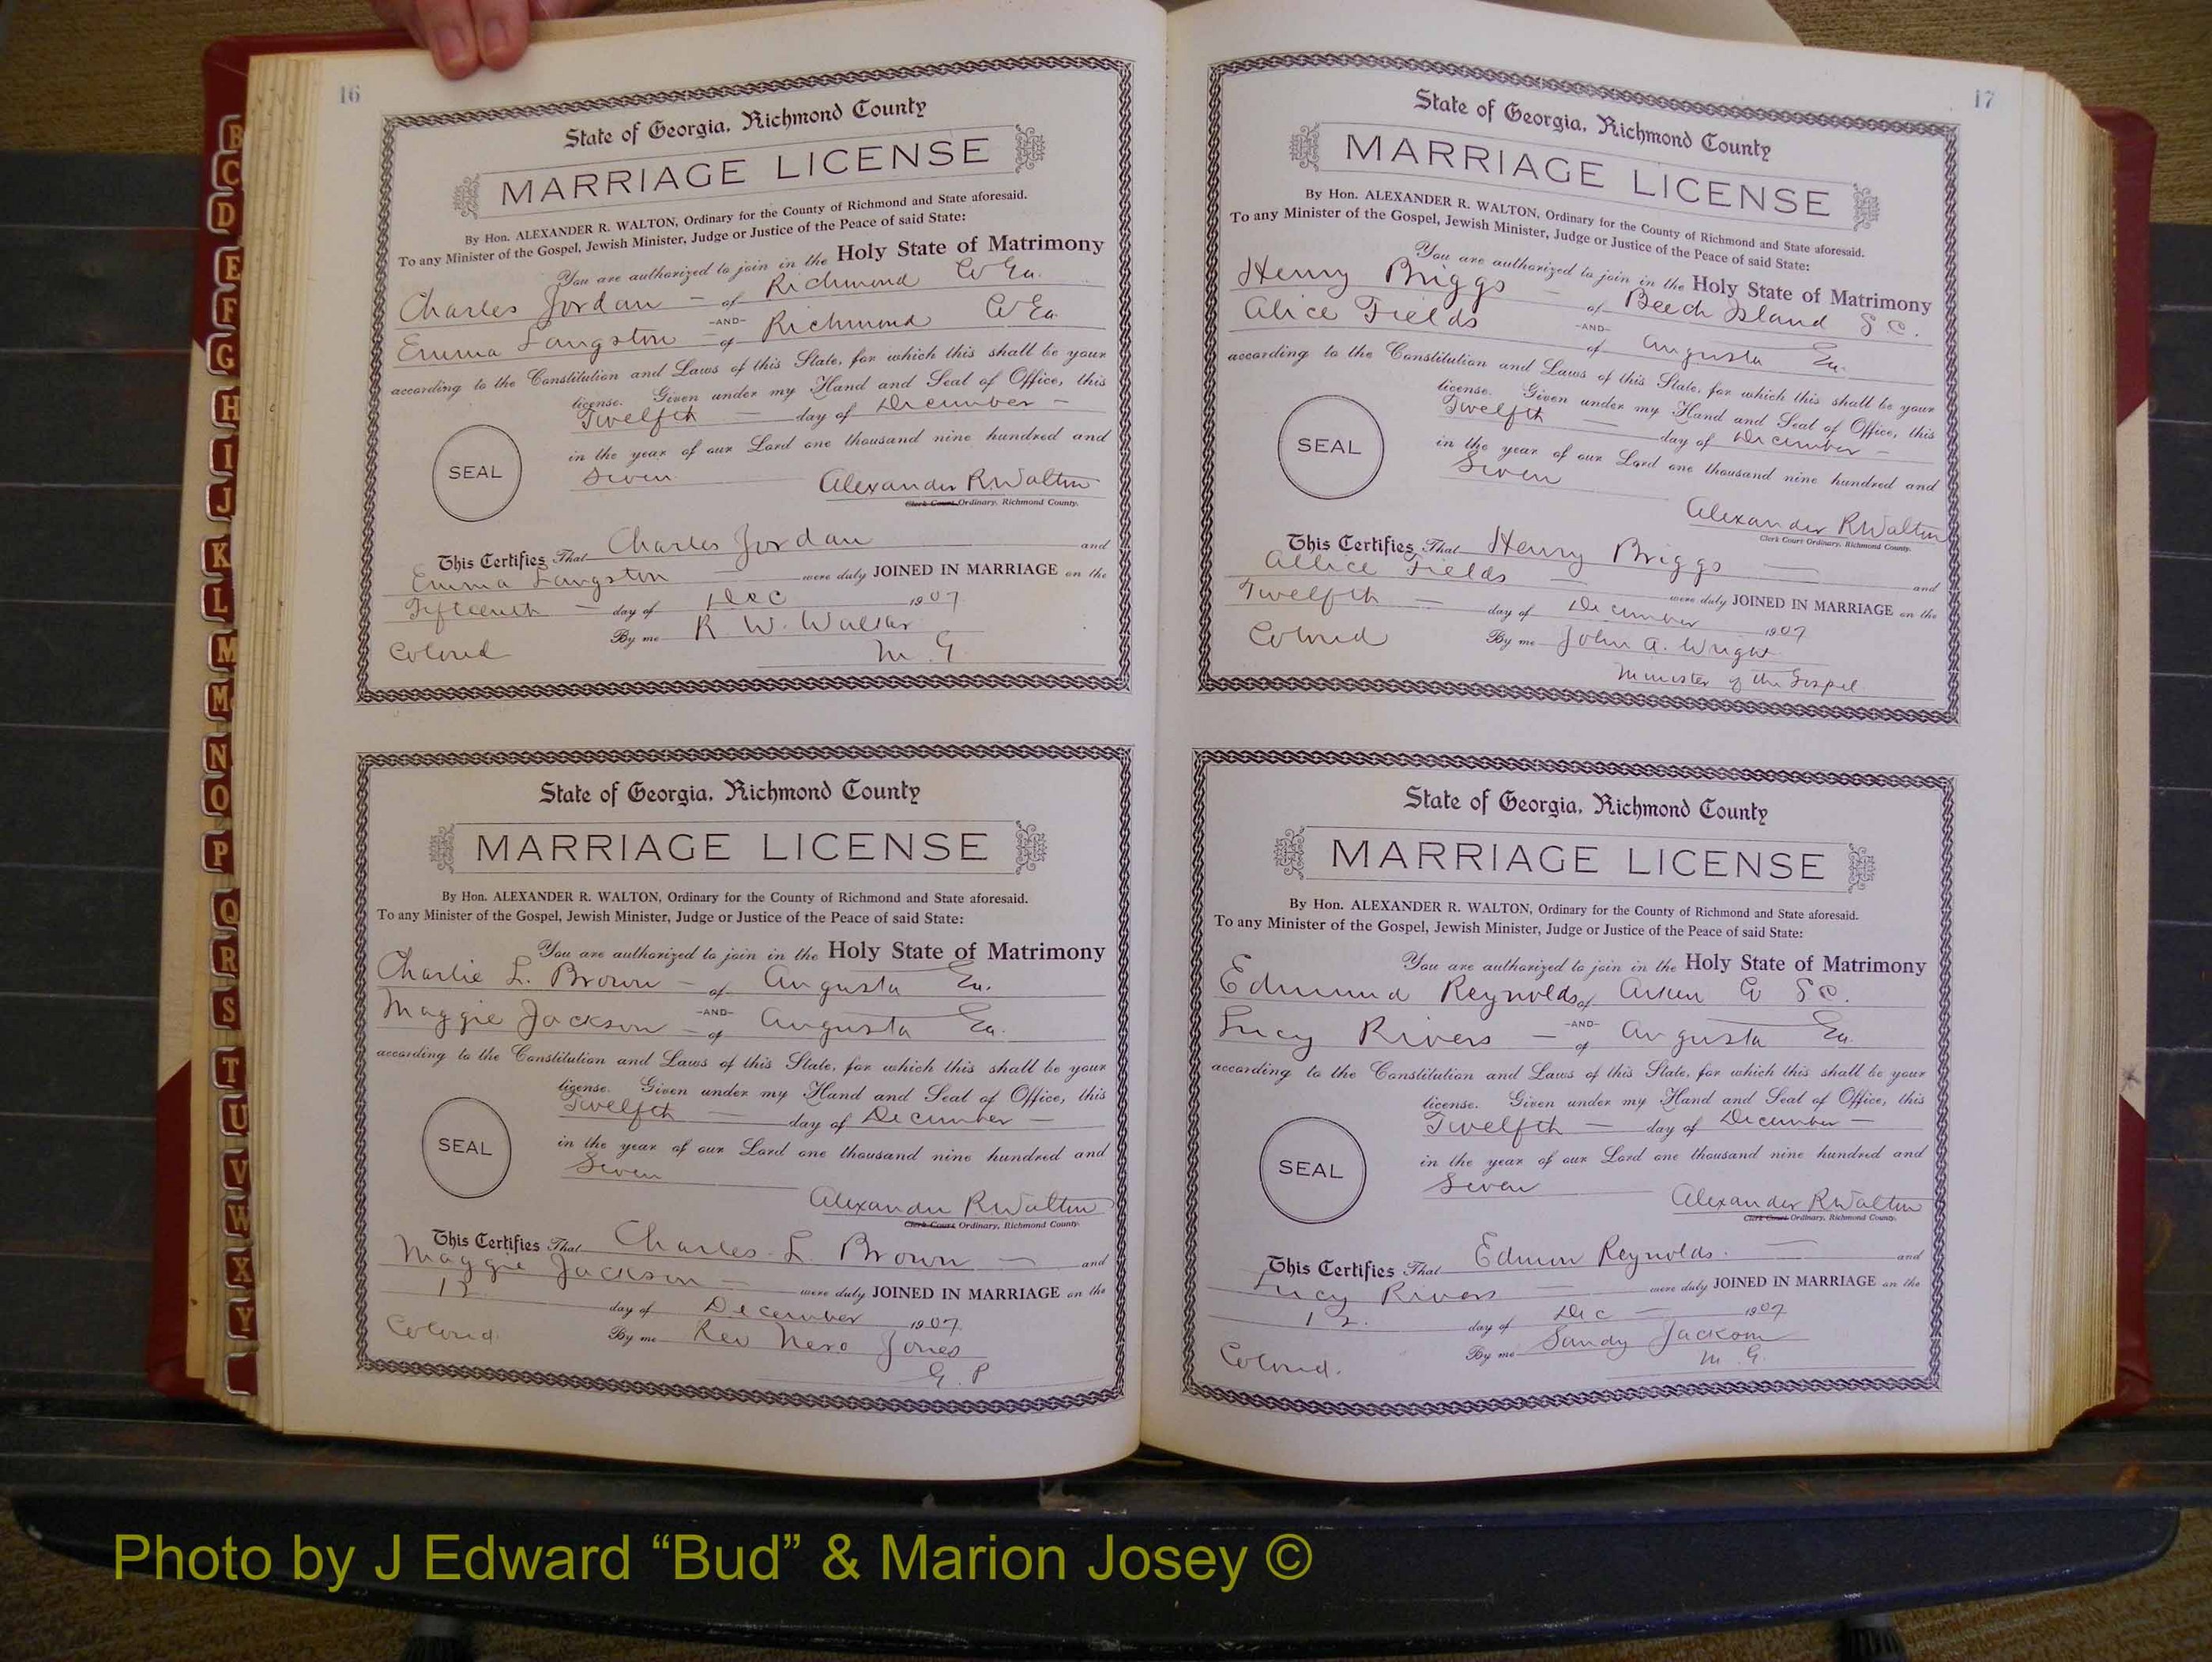 16
State of Georgia, Richmond County
MARRIAGE LICENSE
By Hon. ALEXANDER R. WALTON, Ordinary for the County of Richmond and State aforesaid.
To any Minister of the Gospel, Jewish Minister, Judge or Justice of the Peace of said State:
You are authorized to join in the Holy State of Matrimony
Charles Jordan – of Richmond Co Ga.
–AND–
Emma Langston – of Richmond Co Ga
according to the Constitution and Laws of this State, for which this shall be your
license. Given under my Hand and Seal of Office, this
Twelfth — day of December –
in the year of our Lord one thousand nine hundred and
Seven
SEAL
Alexander R Walton
Clerk Court Ordinary, Richmond County.
This Certifies That Charles Jordan and
Emma Langston — were duly JOINED IN MARRIAGE on the
Fifteenth – day of Dec 1907
Colored By me R. W. Walker
M. G.
State of Georgia, Richmond County
MARRIAGE LICENSE
By Hon. ALEXANDER R. WALTON, Ordinary for the County of Richmond and State aforesaid.
To any Minister of the Gospel, Jewish Minister, Judge or Justice of the Peace of said State:
You are authorized to join in the Holy State of Matrimony
Charlie L. Brown – of Augusta Ga.
–AND–
Maggie Jackson – of Augusta Ga.
according to the Constitution and Laws of this State, for which this shall be your
license. Given under my Hand and Seal of Office, this
Twelfth — day of December –
in the year of our Lord one thousand nine hundred and
Seven
SEAL
Alexander R Walton
Clerk Court Ordinary, Richmond County.
This Certifies That Charles L. Brown — and
Maggie Jackson – were duly JOINED IN MARRIAGE on the
day of December 1907
Colored By me Rev Nero Jones
G. P
17
State of Georgia, Richmond County
MARRIAGE LICENSE
By Hon. ALEXANDER R. WALTON, Ordinary for the County of Richmond and State aforesaid.
To any Minister of the Gospel, Jewish Minister, Judge or Justice of the Peace of said State:
You are authorized to join in the Holy State of Matrimony
Henry Briggs – of Beech Island S.C.
–AND–
Alice Fields of Augusta Ga.
according to the Constitution and Laws of this State, for which this shall be your
license. Given under my Hand and Seal of Office, this
Twelfth — day of December –
in the year of our Lord one thousand nine hundred and
Seven
SEAL
Alexander R Walton
Clerk Court Ordinary, Richmond County.
This Certifies That Henry Briggs — and
Allice Fields — were duly JOINED IN MARRIAGE on the
Twelfth – day of December 1907
Colored By me John A. Wright
Minister of the Gospel
State of Georgia, Richmond County
MARRIAGE LICENSE
By Hon. ALEXANDER R. WALTON, Ordinary for the County of Richmond and State aforesaid.
To any Minister of the Gospel, Jewish Minister, Judge or Justice of the Peace of said State:
You are authorized to join in the Holy State of Matrimony
Edmund Reynolds of Aiken Co S.C.
–AND–
Lucy Rivers – of Augusta Ga.
according to the Constitution and Laws of this State, for which this shall be your
license. Given under my Hand and Seal of Office, this
Twelfth – day of December –
in the year of our Lord one thousand nine hundred and
Seven
SEAL
Alexander R Walton
Clerk Court Ordinary, Richmond County.
This Certifies That Edmon Reynolds. — and
Lucy Rivers — were duly JOINED IN MARRIAGE on the
12. day of Dec – 1907
Colored. By me Sandy Jackson
M. G.
B
C
D
E
F
G
H
I
J
K
L
M
M
N
O
P
Q
R
S
T
U
V
W
X
Y
Photo by J Edward “Bud” & Marion Josey ©